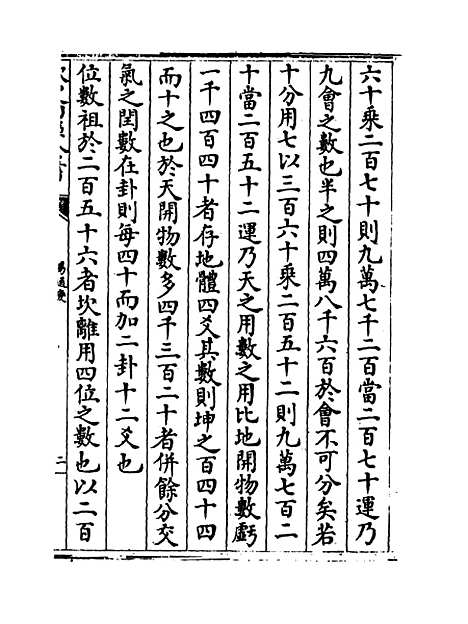 六十乘二百七十則九萬七千二百當二百七十運乃
九會之數也半之則四萬八千六百於會不可分矣若
十分用七以三百六十乘二百五十二則九萬七百二
十當二百五十二運乃天之用數之用比地開物數虧
一千四百四十者存地體四爻其數則坤之百四十四
而十之也於天開物數多四千三百二十者併餘分交
氣之閏數在卦則每四十而加二卦十二爻也
位數祖於二百五十六者坎離用四位之數也以二百
易通變
二